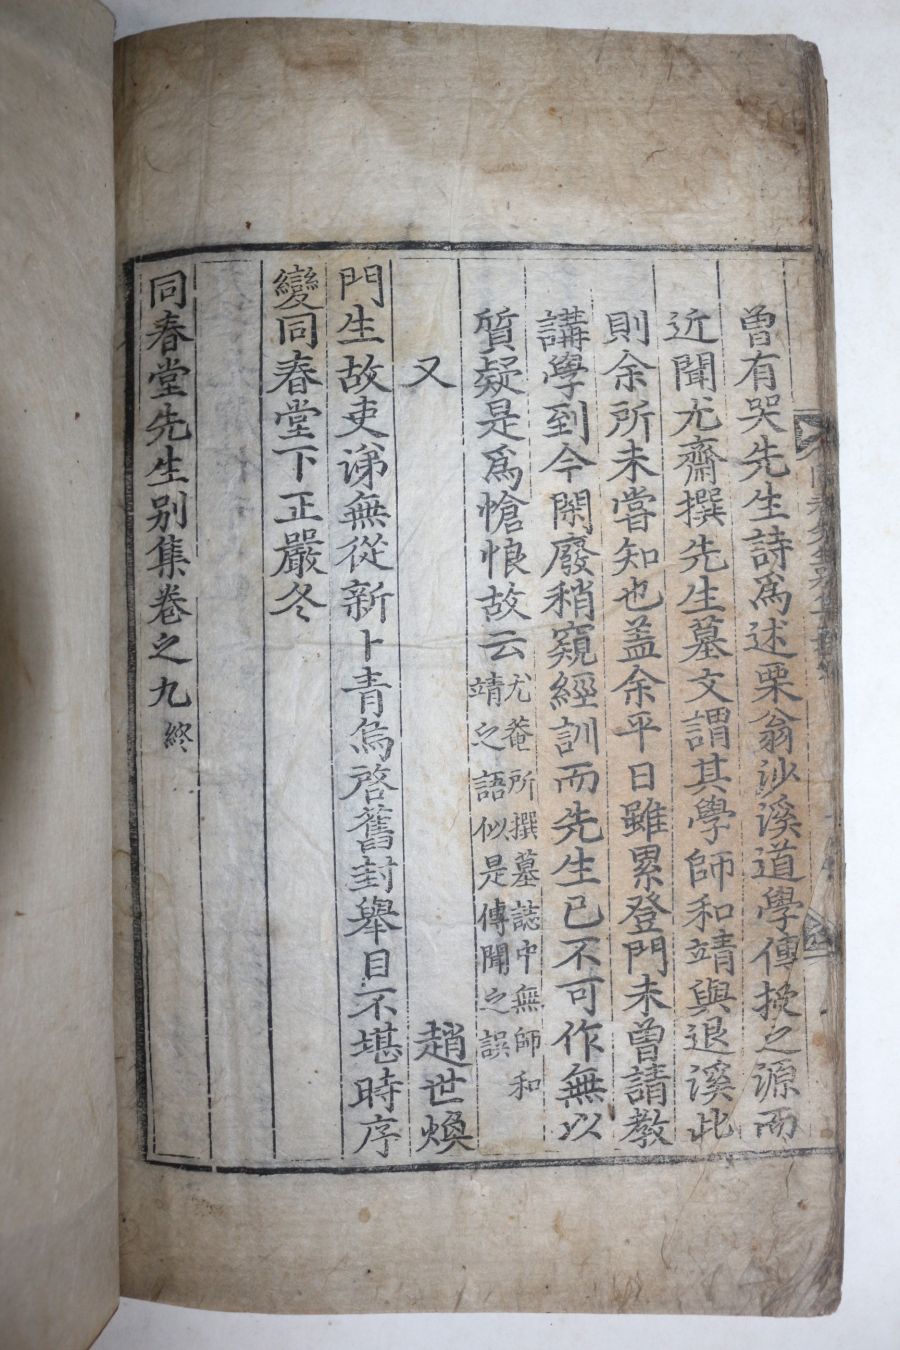 曽有哭先生詩爲述栗翁沙溪道學傳授之源而
近聞尤齋撰先生墓文謂其學師和靖與退溪此
則余所未嘗知也盖余平日雖累登門未曽請教
講學到今閑廢稍窺經訓而先生已不可作無以
質疑是爲愴悢故云尤菴所撰墓誌中無師和
靖之語似是傳聞之誤
又 趙世煥
門生故吏涕無從新卜青烏啓舊封擧目不堪時序
變同春堂下正嚴冬
同春堂先生别集卷之九 終